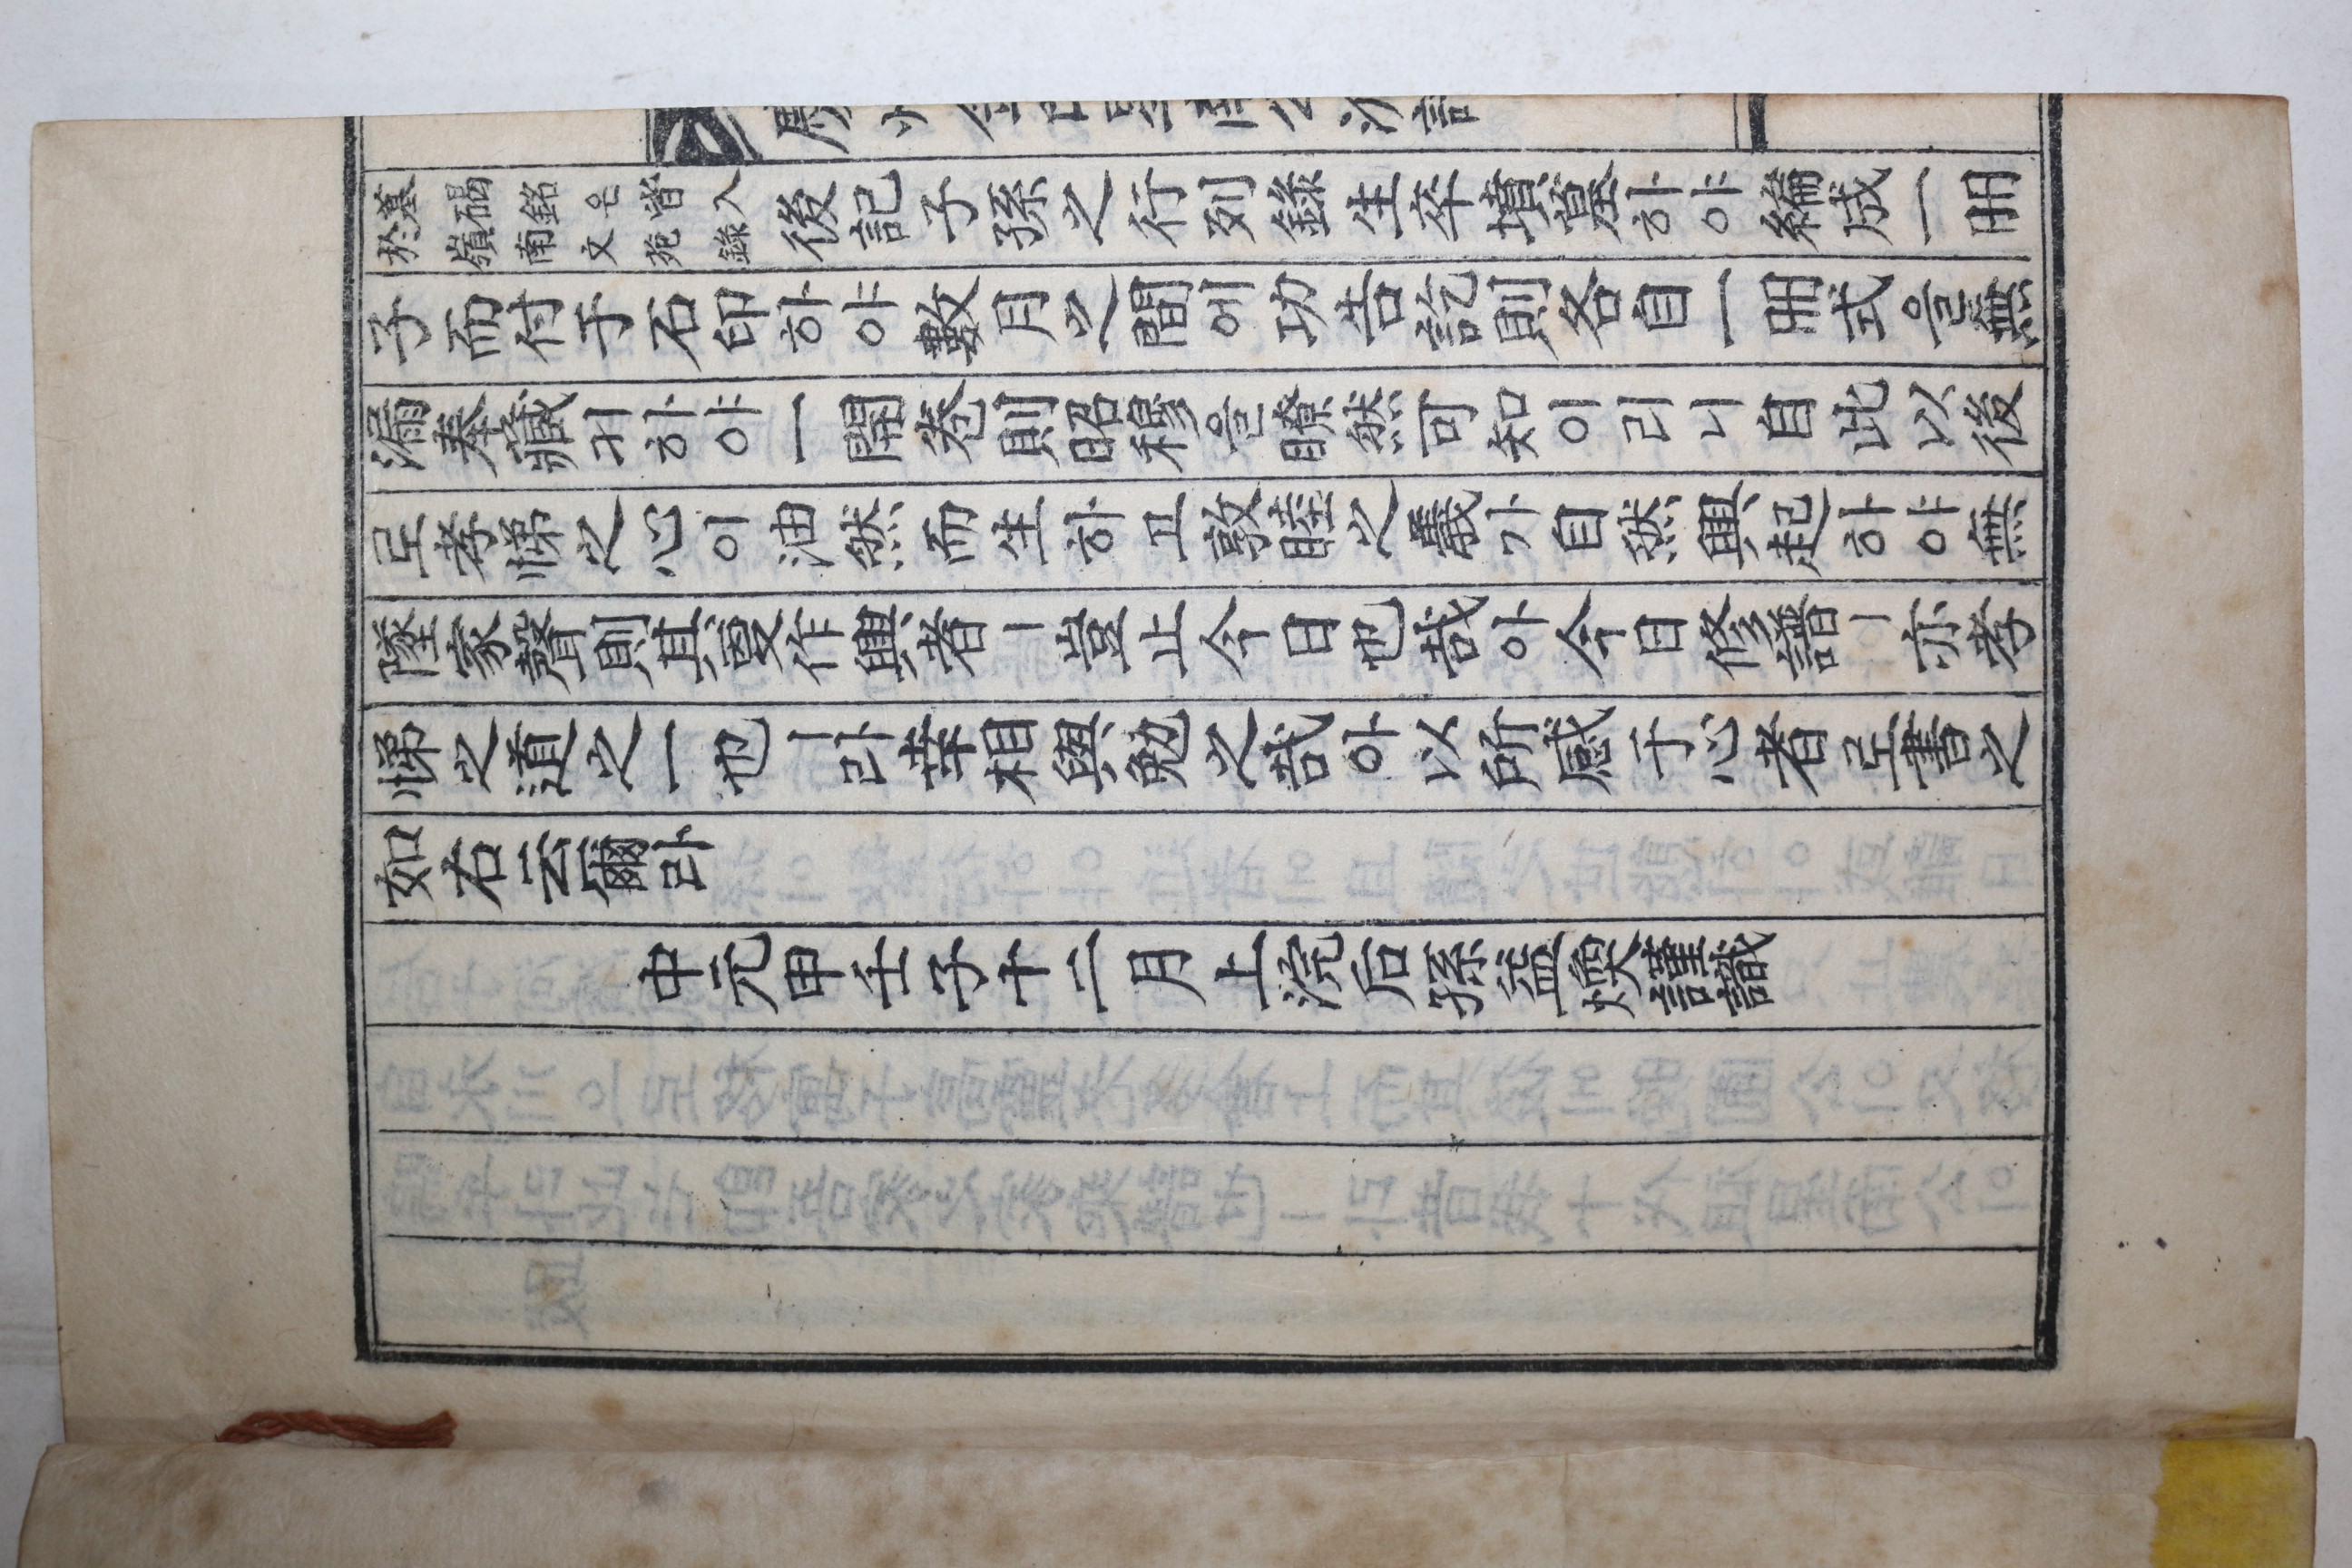 墓碣銘은皆入
於嶺南文苑錄
後記子孫之行列錄生卒墳墓하야編成一冊
子而付于石印하야數月之間에功告訖則各自一冊式을無
漏奉藏케하야一開卷則昭穆을瞭然可知이리니自此以後
로孝悌之心이油然而生하고敦睦之義가自然興起하야無
墜家聲則其更作興者ㅣ豈止今日也哉아今日修譜ㅣ亦孝
悌之道之一也ㅣ라幸相與勉之哉아以所感于心者로書之
如右云爾라
中元甲壬子十二月上浣后孫益煥謹識